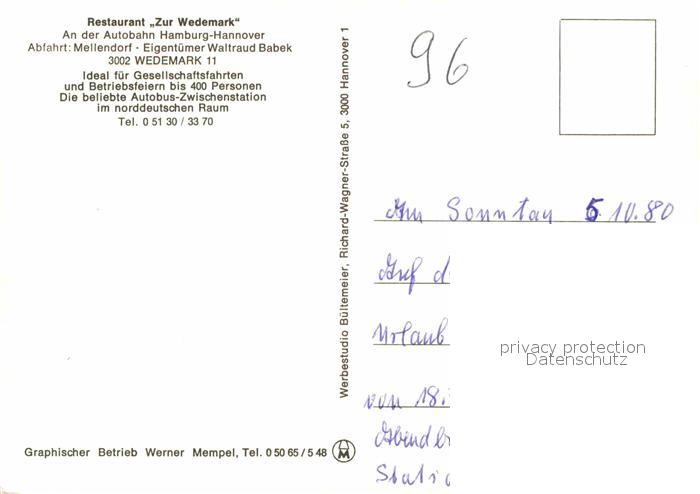 Restaurant „Zur Wedemark“
An der Autobahn Hamburg-Hannover
Abfahrt: Mellendorf · Eigentümer Waltraud Babek
3002 WEDEMARK 11
Ideal für Gesellschaftsfahrten
und Betriebsfeiern bis 400 Personen
Die beliebte Autobus-Zwischenstation
im norddeutschen Raum
Tel. 0 51 30 / 33 70
Graphischer Betrieb Werner Mempel, Tel. 0 50 65 / 5 48
Werbestudio Bültemeier, Richard-Wagner-Straße 5, 3000 Hannover 1
96
Am Sonntag 5.10.80
Auf d
Urlaub
von 18.
Abendbr
Statio
privacy protection
Datenschutz